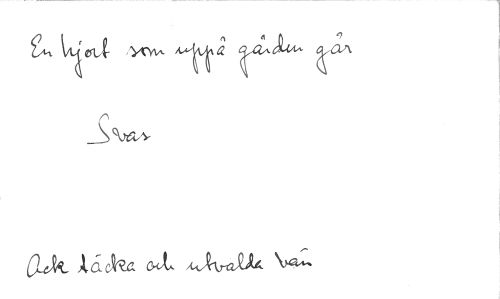 En hjort som uppå gården går
Svas
Ack täcka och utvalda vän